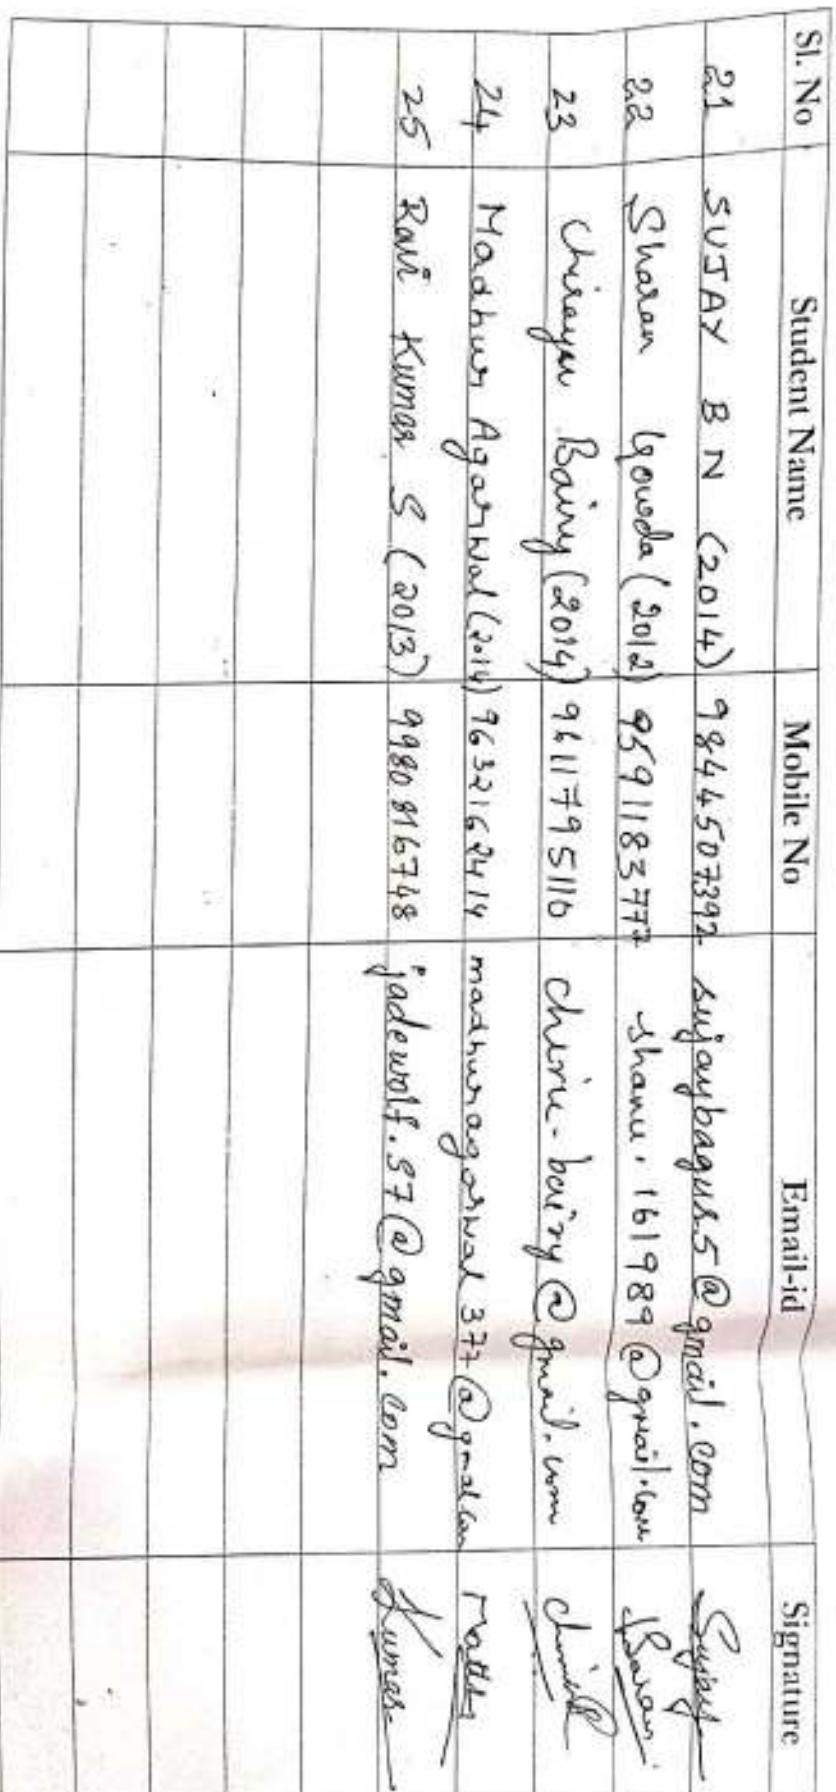 Sl. No Student Name Mobile No Email-id Signature
21 SUJAY B N (2014) 9844507392 sujaybagur5@gmail.com Sujay
22 Sharan Gowda (2012) 9591183777 shanu.161989@gmail.com
23 Chirayu Bairy (2014) 9611795110 chiru.bairy@gmail.com
24 Madhur Agarwal (2014) 9632162414 madhuragarwal377@gmail.com
25 Ravi Kumar S (2013) 9980816748 jadewolf.97@gmail.com Kumar